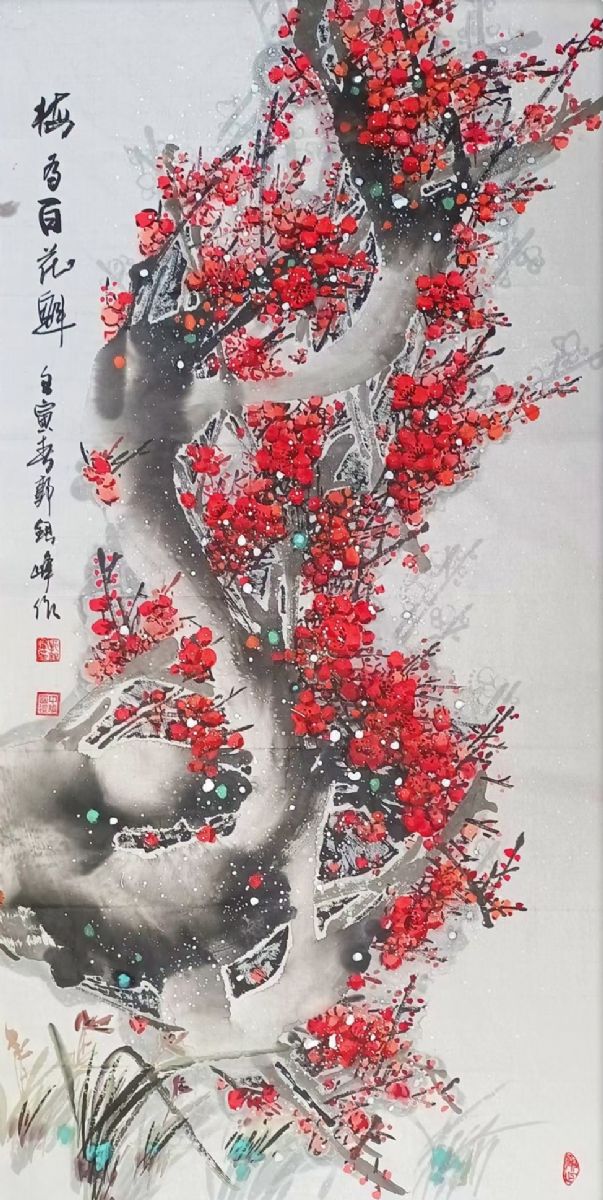 梅为百花魁
壬寅春郭镇峰作